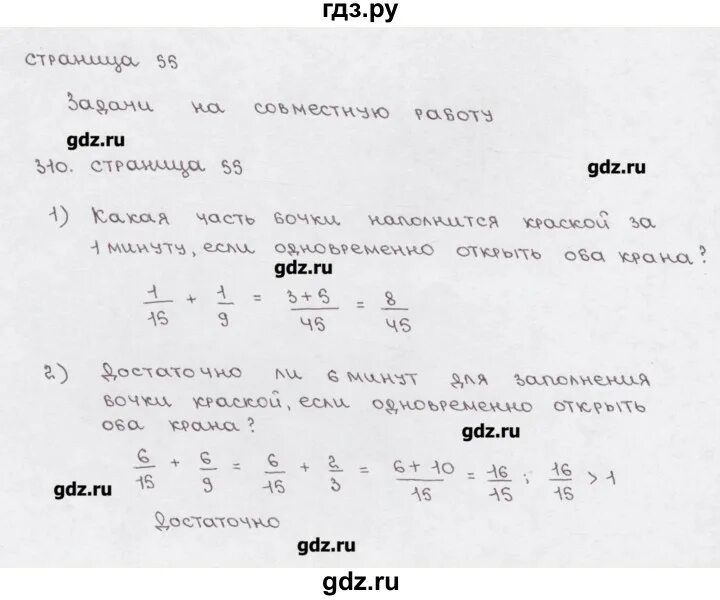 гдз.ру
страница 55
Задачи на совместную работу
gdz.ru
310. страница 55
gdz.ru
1) Какая часть бочки наполнится краской за
1 минуту, если одновременно открыть оба крана?
gdz.ru
1/15 + 1/9 = 3+5/45 = 8/45
2) Достаточно ли 6 минут для заполнения
бочки краской, если одновременно открыть
оба крана?
gdz.ru
6/15 + 6/9 = 6/15 + 2/3 = 6+10/15 = 16/15 ; 16/15 > 1
gdz.ru
Достаточно
gdz.ru
gdz.ru